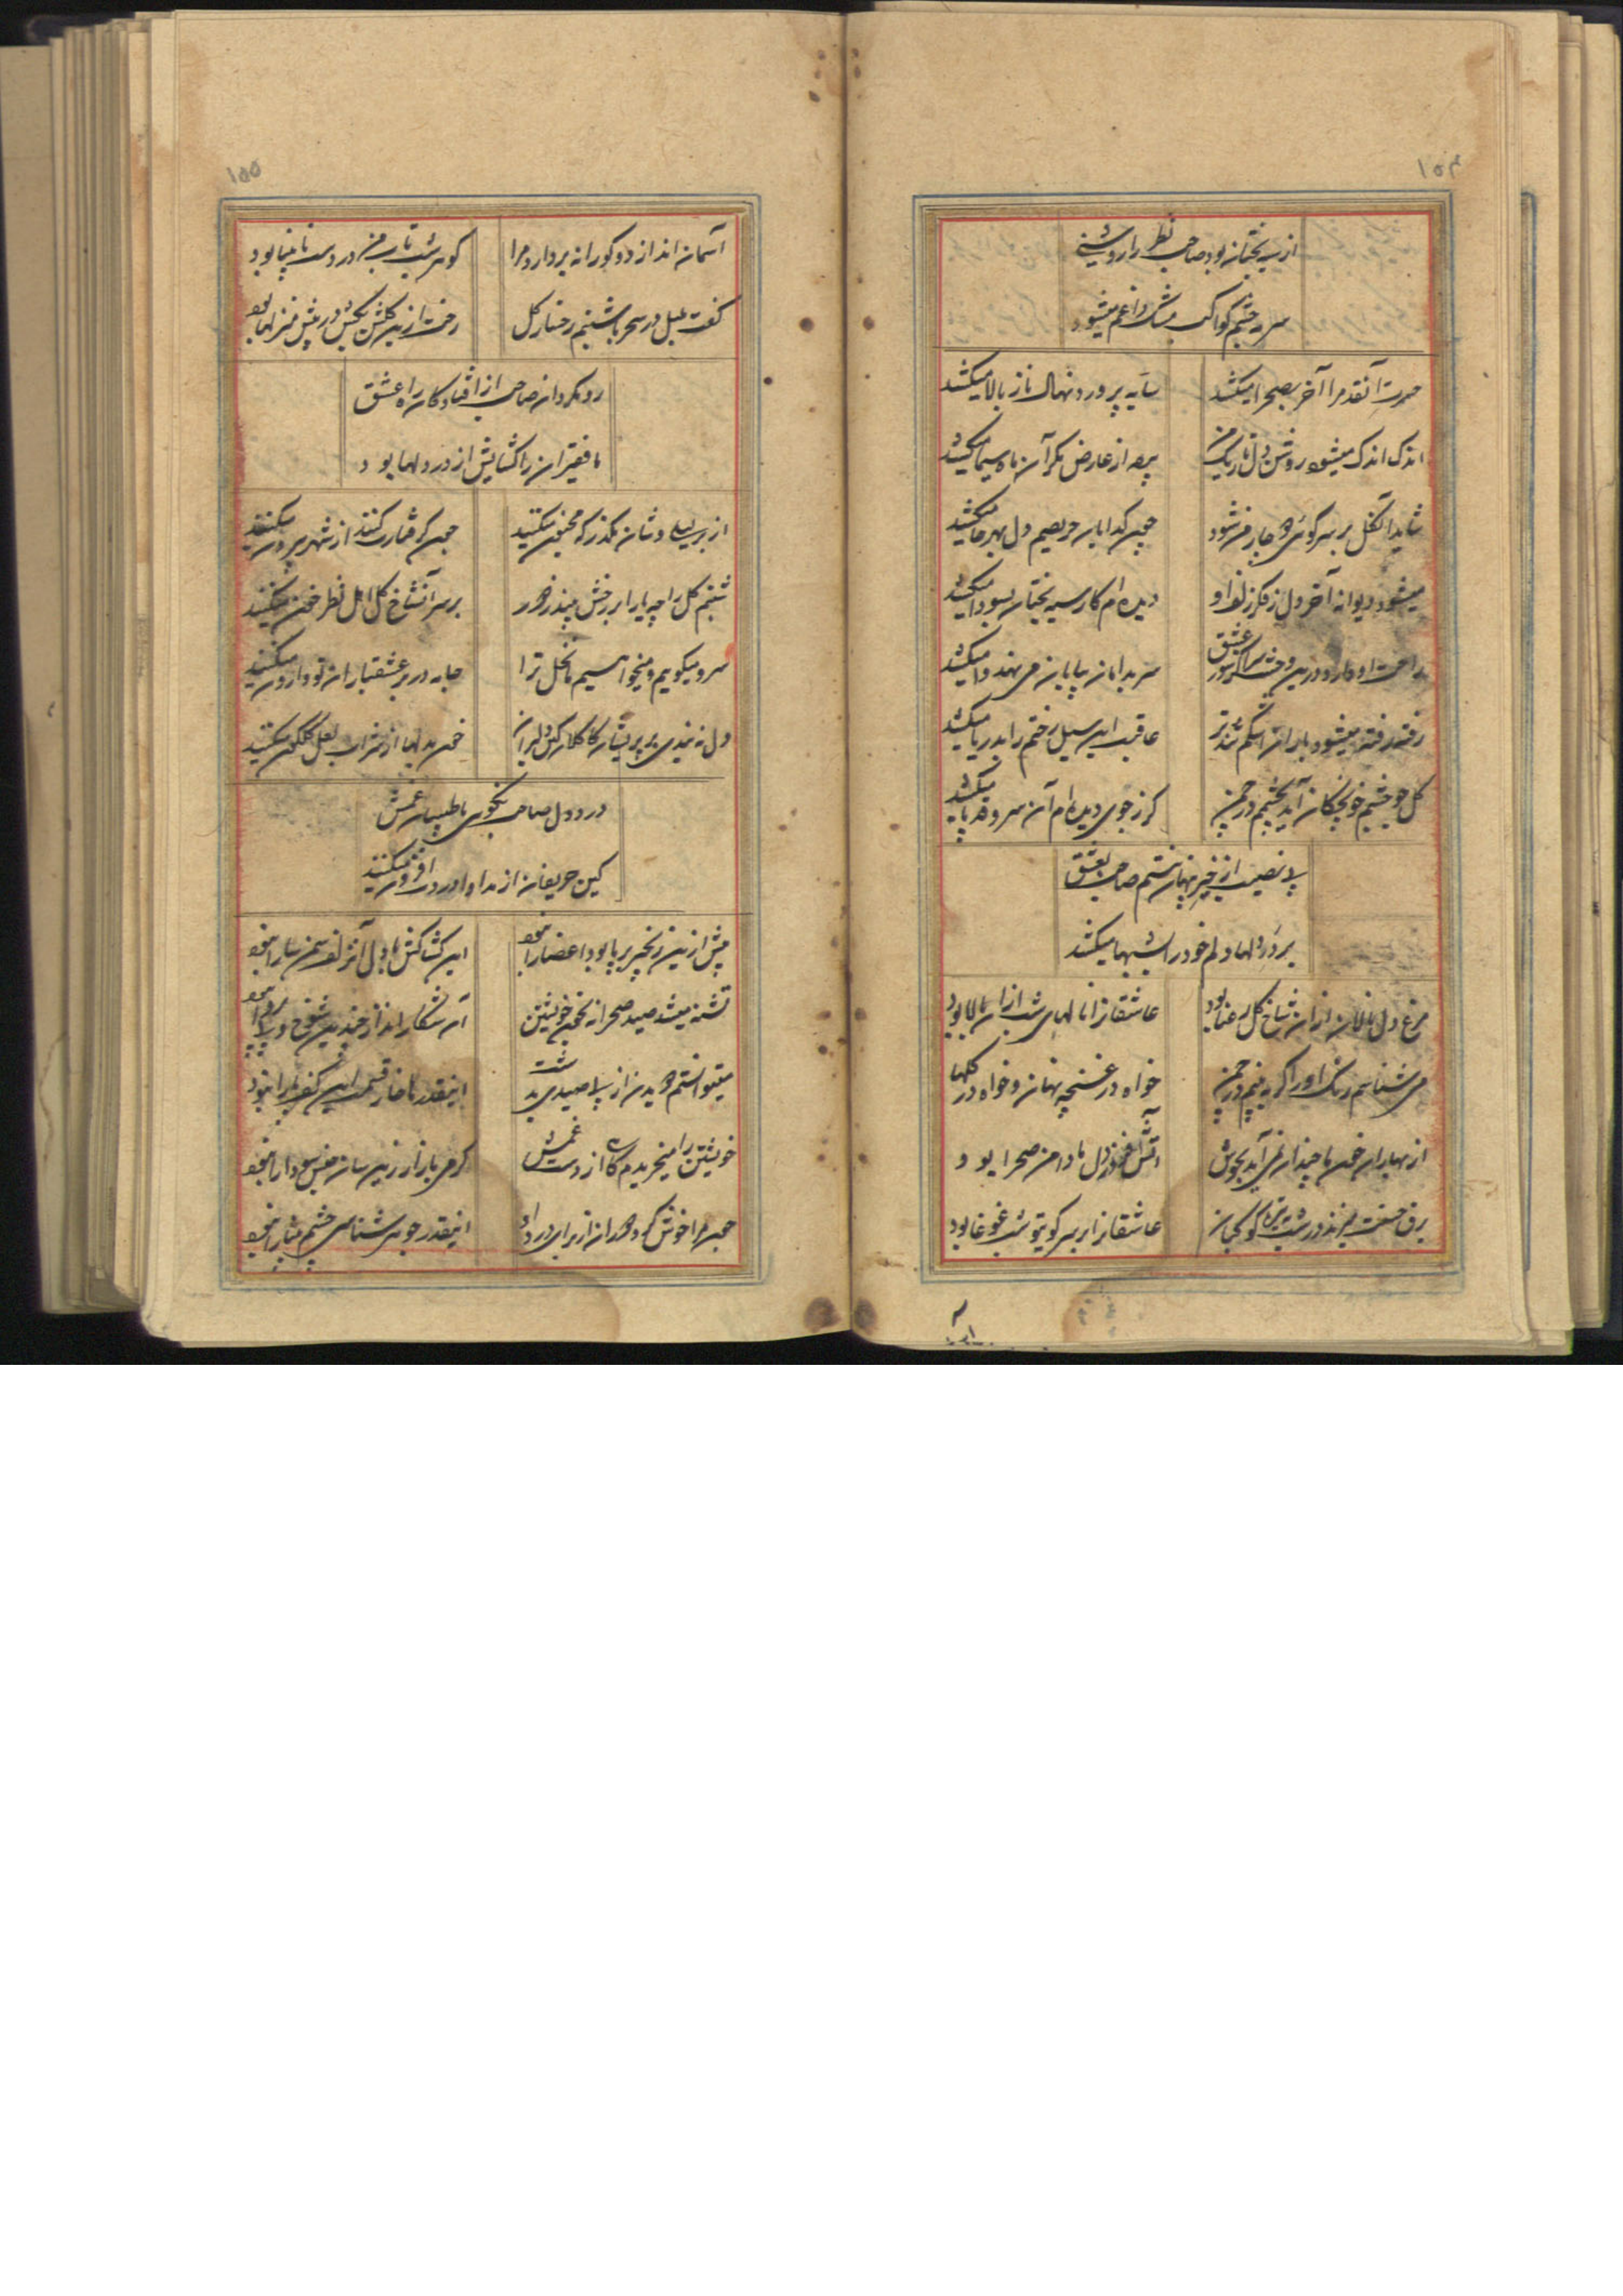 ۱۵۴
از سیه بختان بود صاحب نظر را روشنی
سرمه چشم کواکب داغم میشود
حسرت آنقد مرا آخر بصحرا میکشد سایه پرورد نهال ناز بالا میکشد
اندک اندک میشود روشن دل تاریک من پرده از عارض مگر آن ماه سیما میکشد
شاید آنگل بر سر کوی دچار من شود چون کدایان حریصم دل بهر جا میکشد
میشود دیوانه آخر دل ز فکر زلف او دیده ام کار سیه بختان بسودا میکشد
راحت او دارد درین وحشت سرا کز سوز عشق سر بدامان بیابان می نهد وا میکشد
رفته رفته میشود باران اشکم تندتر عاقبت این سیل رختم را بدریا میکشد
کل چو چشم خونچکان آید بچشمم در چمن کرز جوی دیده ام آن سرو قد پا میکشد
بی نصیب از خیر پنهان نیستم صاحب بعشق
بر در دلها دلم خود را شبها میکشد
مرغ دل نالان از ان شاخ کل رعنا بود عاشقانرا نالهای شب از ان بالا بود
می شناسم رنک او را کر به بینم در چمن خواه در غنچه پنهان و خواه در کلها
از بهاران خون ما چندان نمی آید بجوش آتش افروز دل ما دامن صحرا بود
برق حسنت میزند در شب کو عاشقانرا بر سر کویتو شب غوغا بود
۱۵۵
آسمان انداز دو کورانه بردارد مرا کوهر شب تاب من در دست نابینا بود
کفت بلبل در سحر با شبنم رخسار کل رخت ازین کلشن بکش در پیش منزلها بود
رو مکردان صاحب از افتادکان راه عشق
ما فقیران را کشایش از در دلها بود
از بر لیلی وشان مکذر که مجنون میکنند چون کرفتارت کنند از شهر بیرون میکنند
شبنم کل را چه یارا بر رخش بیند در بر سر آنشاخ کل اهل نظر خون میکنند
سرو میکویم و میخواهیم نخل ترا جامه در بر عشقبازان تو وارون میکنند
دل نه بندی بر پریشان کاکلان کاین دلبران خون بدلها از شراب لعل کلکون میکنند
درد دل صاحب نکوی با طبیبان غمش
کین حریفان از مداوا درد افزون میکنند
پیش ازین زنجیر بر پا بود اعضا را نبود این کشاکش با دل آنزلف سمن سا را نبود
تشنه میشد صید صحرا نه بخون خویشتن آن شکار انداز چندین شوخ و بی پروا نبود
میتوانستم دویدن از پی صیدی بدشت اینقدرها خار قسمت این کف پا را نبود
خویشتن را میخریدم کاه از دست غمش کرمی بازار زین سان جنس سودا را نبود
چهر را خوش کرده اند از برای درد او اینقدر جوهر شناسی چشم بینا را نبود